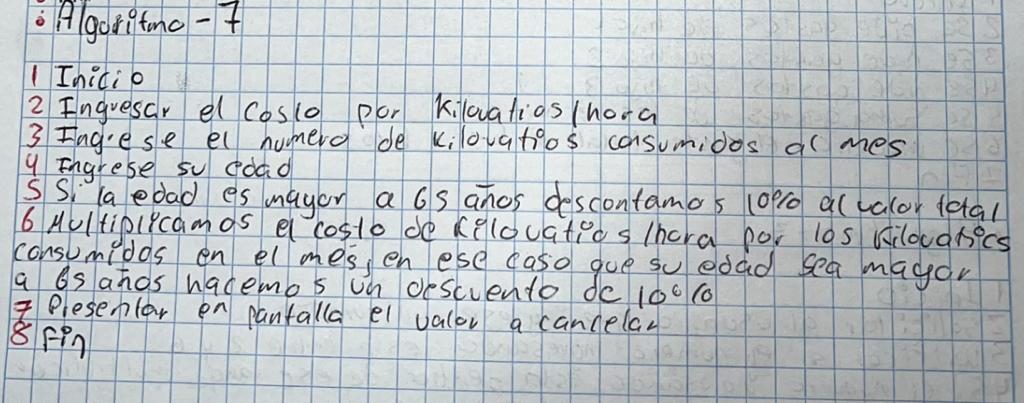 Algoritmo - 7
1 Inicio
2 Ingresar el Costo por Kilovatios/hora
3 Ingrese el numero de kilovatios consumidos al mes
4 Ingrese su edad
5 Si la edad es mayor a 65 años descontamos 10% al valor total
6 Multiplicamos el costo de kilovatios/hora por los kilovatios
consumidos en el mes, en ese caso que su edad sea mayor
a 65 años hacemos un descuento de 10%
7 Presentar en pantalla el valor a cancelar
8 Fin